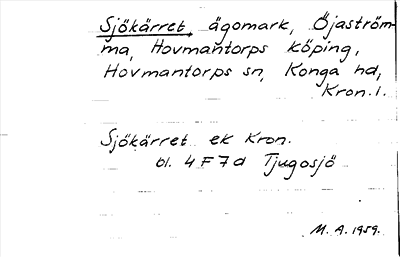 Sjökärret, ägomark, Öjaström-
ma, Hovmantorps köping,
Hovmantorps sn, Konga hd,
Kron. l.
Sjökärret ek Kron.
bl. 4 F 7 d Tjugosjö
M. A. 1959.